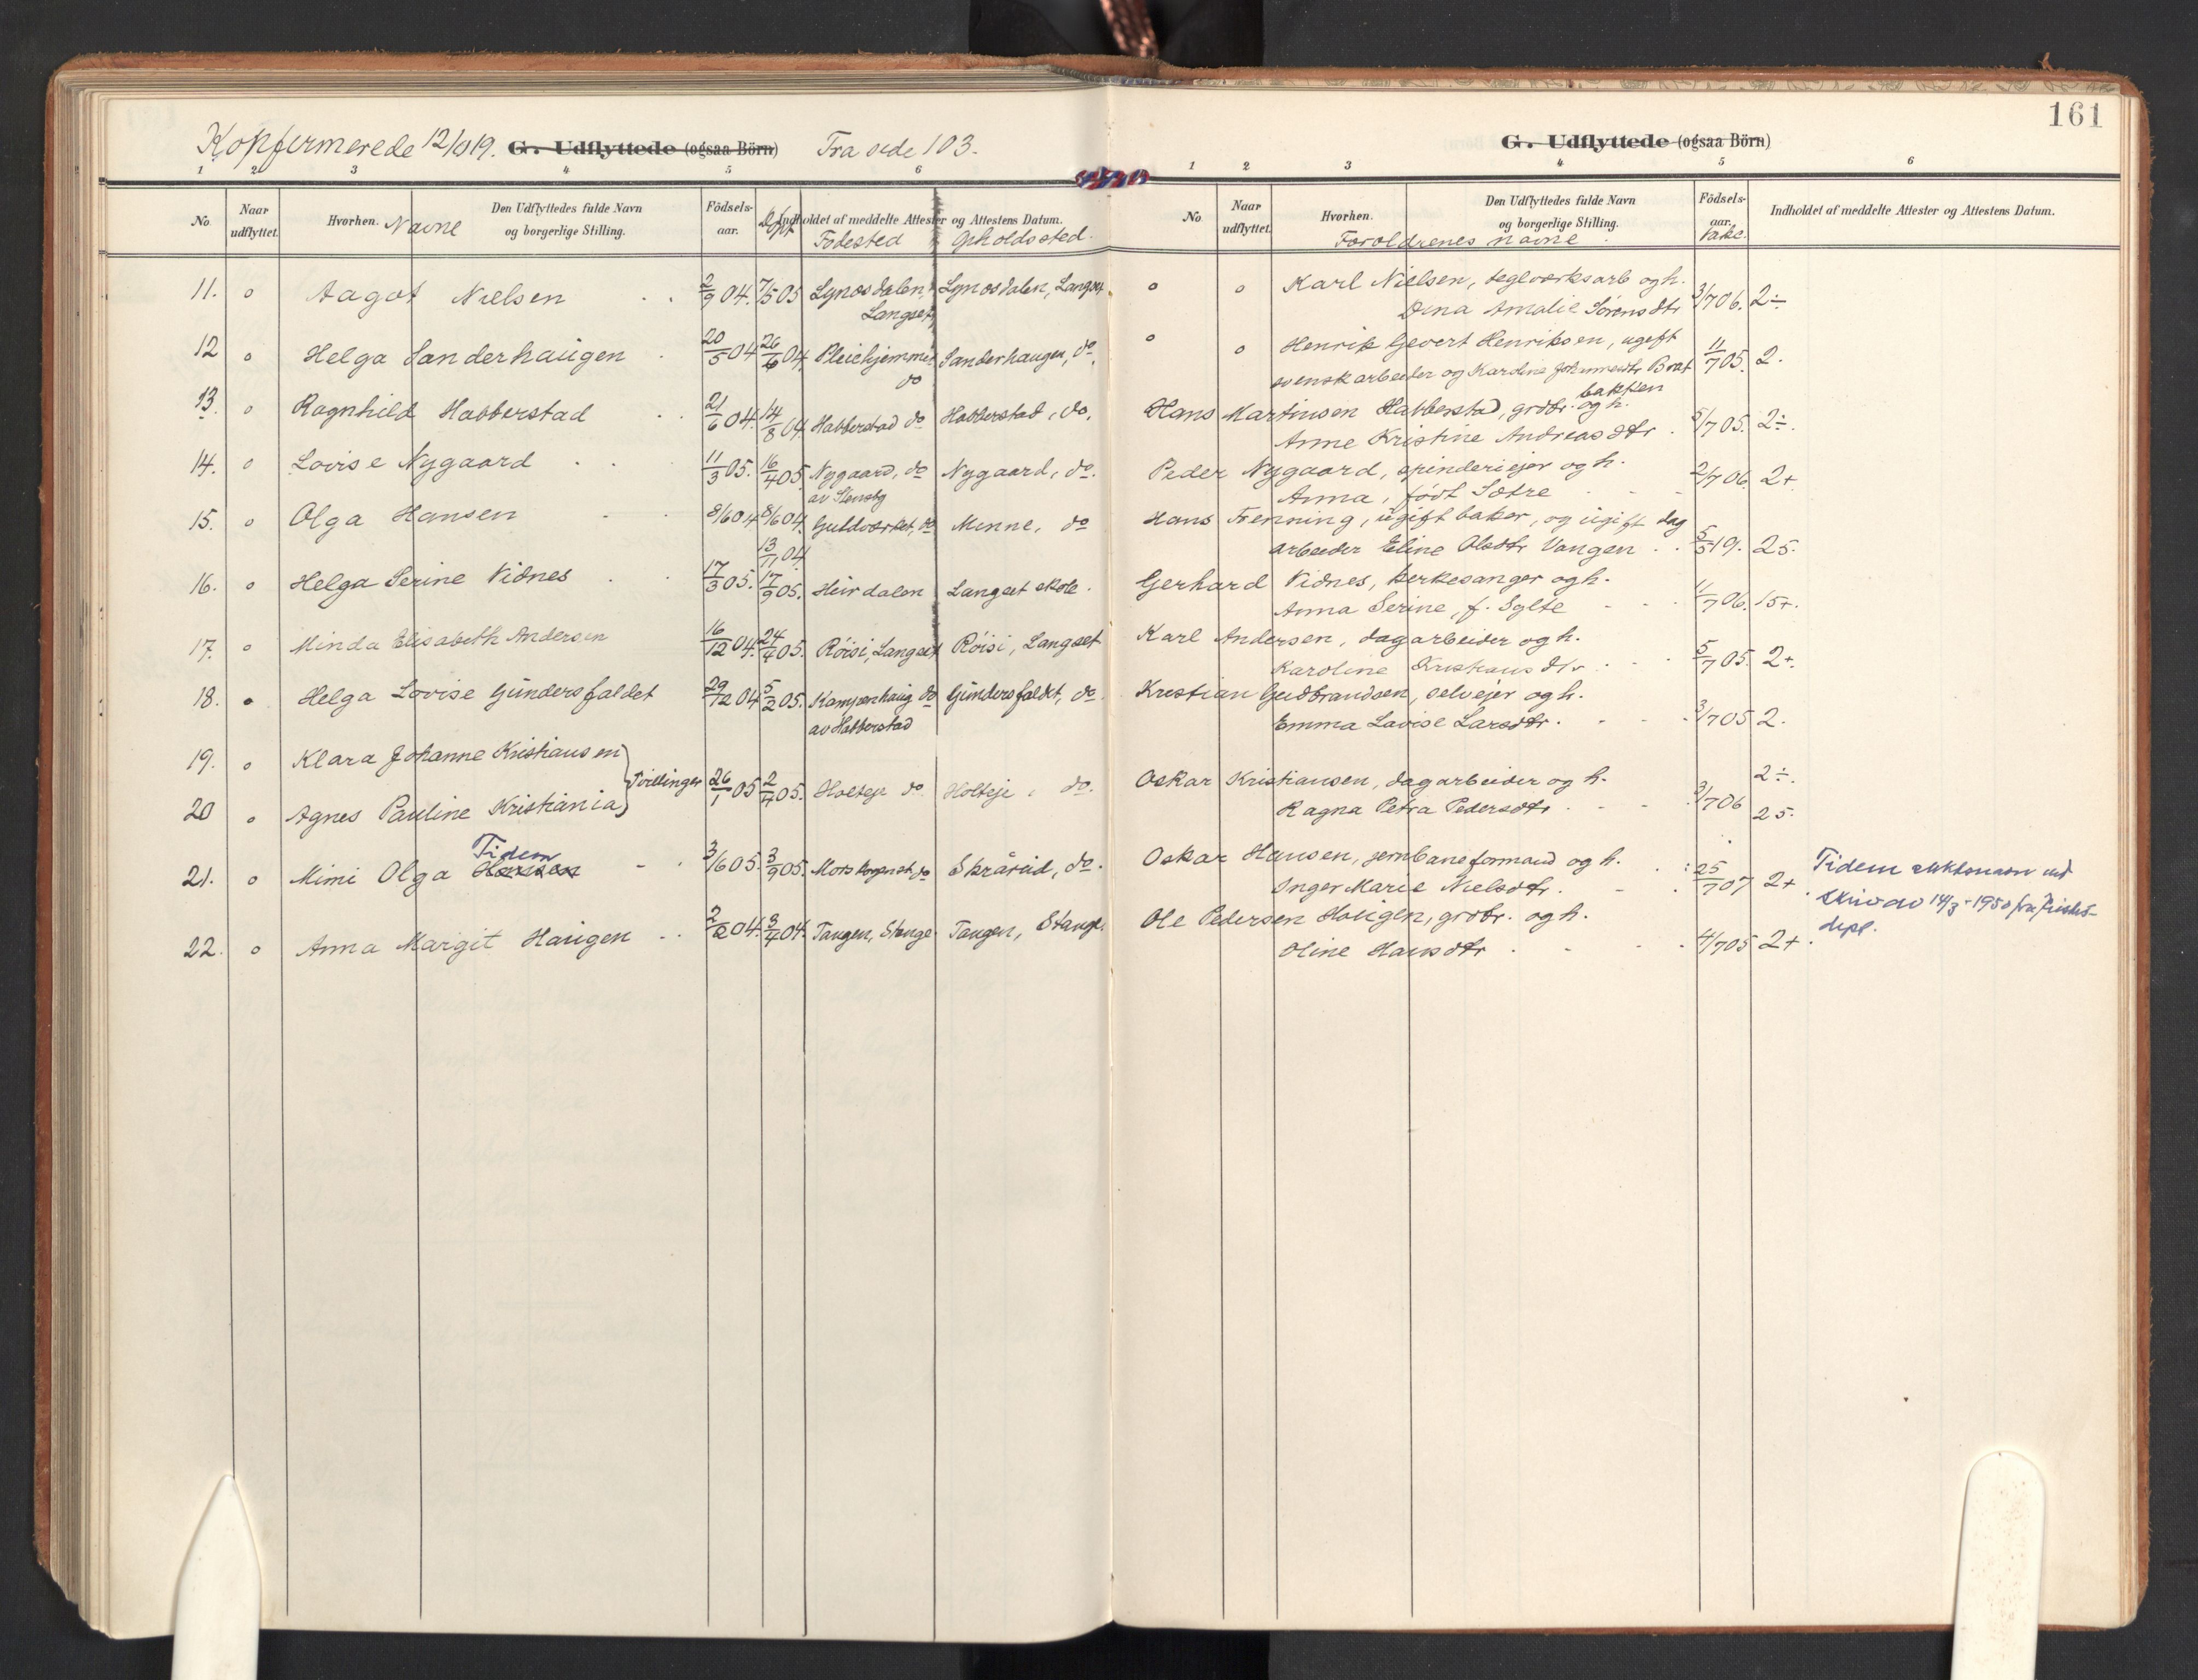 161
Kopfermerede 12/10 19. G. Udflyttede (ogsaa Börn) Fra side 103.
1 2 3 4 5 6
No Naar udflyttet. Hvorhen. Navne Den Udflyttedes fulde Navn og borgerlige Stilling. Födsels-aar. Döpt Indholdet af meddelte Attester og Attestens Datum.
Fødested Opholdssted.
11. o Aagot Nielsen . . 2/9 04. 7/5 05 Lynosdalen, Lynosdalen, Langset
Langset
12 o Helga Sanderhaugen . 20/5 04 26/6 04. Pleiehjemmet Sanderhaugen, do.
do
13. o Ragnhild Habberstad . . 21/6 04. 14/8 04. Habberstad do Habberstad, do.
14. o Lovise Nygaard . . 11/3 05. 16/4 05. Nygaard, do Nygaard, do.
av Stensby
15. o Olga Hansen . . 8/6 04 8/6 04. Guldverket, do Minne, do
13/11 04
16. o Helga Serine Vidnes . . 17/3 05. 17/9 05. Heirdalen Langset skole.
17. o Minda Elisabeth Andersen 16/12 04. 24/4 05. Röisi, Langset Röisi, Langset
18. o Helga Lovise Gundersfaldet 29/12 04 5/2 05. Kampenhaug do Gundersfaldet, do.
av Habberstad
19. o Klara Johanne Kristiansen
Tvillinger 26/1 05 2/4 05. Holteje do Holteje, do.
20 o Agnes Pauline Kristiania
Tidem
21. o Mimi Olga Hansen - . 3/6 05. 3/9 05. Morskognet, do Skrårud, do.
22. o Anna Margit Haugen . . 2/2 04. 3/4 04. Tangen, Stange Tangen, Stange.
G. Udflyttede (ogsaa Börn)
1 2 3 4 5 6
No Naar udflyttet. Hvorhen. Den Udflyttedes fulde Navn og borgerlige Stilling. Födsels-aar. Indholdet af meddelte Attester og Attestens Datum.
Foroldrenes navne. Vakc.
o o Karl Nielsen, teglverksarb og h.
Dina Amalie Sørensdtr 3/7 06. 2÷
o o Henrik Gevert Henriksen, ugift
svensk arbeider og Karoline Johannesdtr Brat 11/7 05. 2.
bakken
Hans Martinsen Habberstad, grdbr. og h.
Anne Kristine Andreasdtr . 5/7 05. 2÷.
Peder Nygaard, spinderiejer og h.
Anna, født Sætre - - 2/7 06. 2+
Hans Frenning, ugift baker, og ugift dag
arbeider Eline Olsdtr Vangen . . 5/5 19. 25.
Gerhard Vidnes, kirkesanger og h.
Anna Serine, f. Sylte - - . 11/7 06. 15+.
Karl Andersen, dagarbeider og h.
Karoline Kristiansdtr . - . 5/7 05. 2+.
Kristian Gudbrandsen, selvejer og h.
Emma Lovise Larsdtr. - - . 3/7 05 2.
Oskar Kristiansen, dagarbeider og h. 2÷.
Ragna Petra Pedersdtr . - - . 3/7 06 25.
Oskar Hansen, jernbaneformand og h.
Inger Marie Nielsdtr. - . 25/7 07 2+ Tidem slektsnavn ved
skriv av 14/3-1950 fra Justis-
depl.
Ole Pedersen Haugen, grdbr. og h.
Oline Hansdtr . - - . 4/7 05 2+.